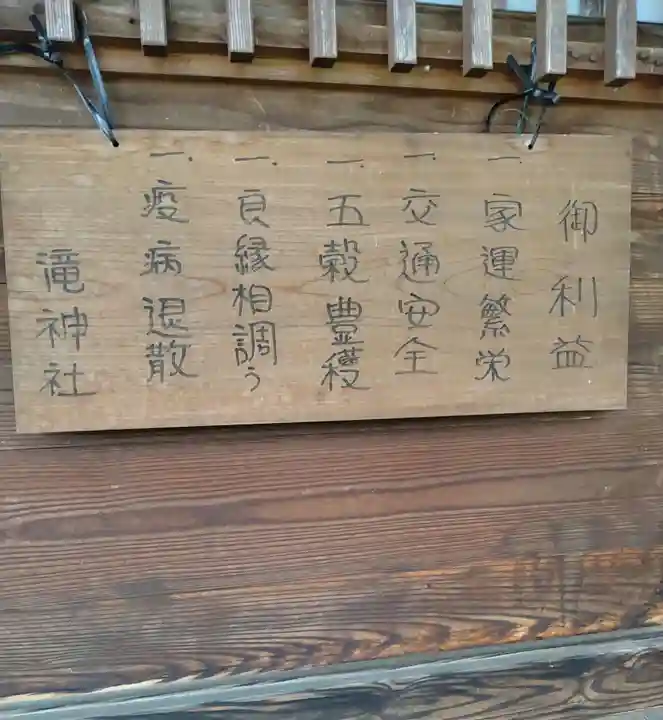 御利益
一、家運繁栄
一、交通安全
一、五穀豊穫
一、良縁相調う
一、疫病退散
滝神社